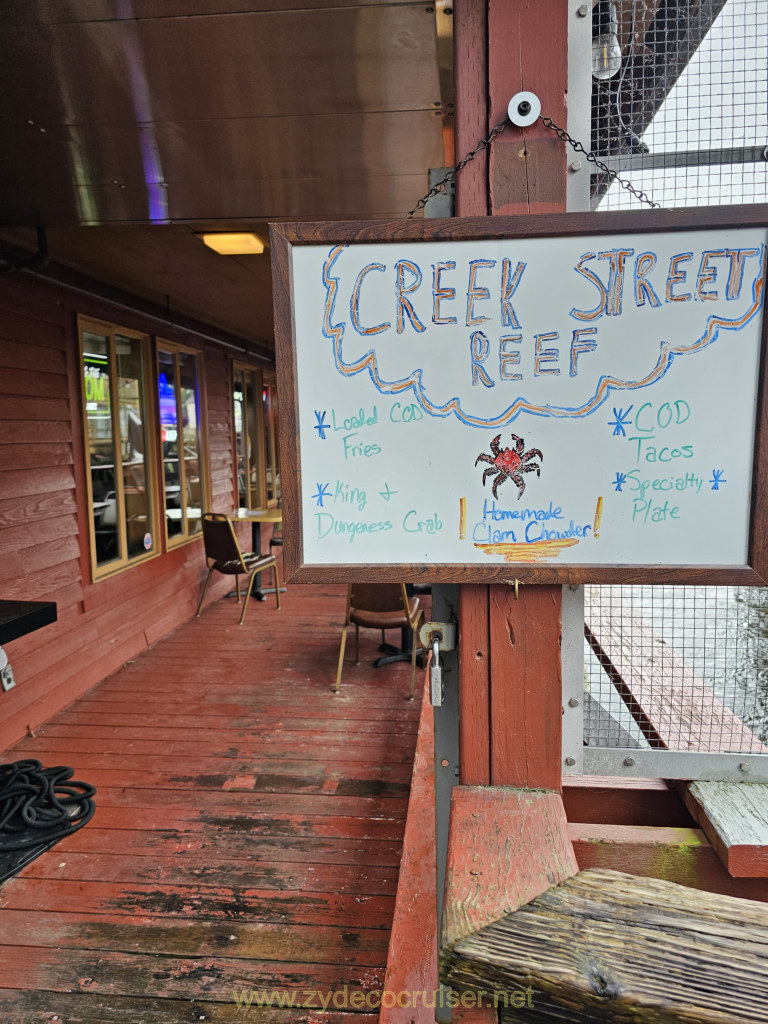 CREEK STREET
REEF
Loaded COD
Fries
King +
Dungeness Crab
Homemade
Clam Chowder
COD
Tacos
Specialty
Plate
www.zydecocruiser.net